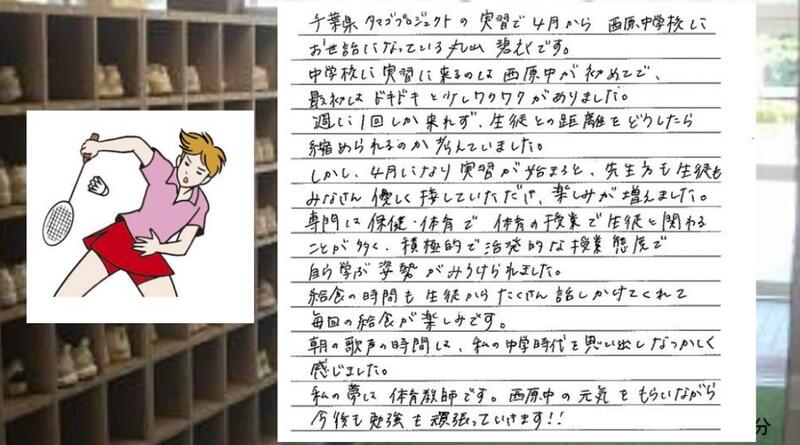 千葉県タマゴプロジェクトの実習で4月から 西原中学校に
お世話になっている丸山 碧です。
中学校に実習に来るのは西原中が初めてで、
最初はドキドキと少しワクワクがありました。
週に1回しか来れず、生徒との距離をどうしたら
縮められるのか考えていました。
しかし、4月になり実習が始まると、先生方も生徒も
みなさん優しく接していただき、楽しみが増えました。
専門は保健・体育で 体育の授業で生徒と関わる
ことが多く、積極的で活発的な授業態度で
自ら学ぶ姿勢がみうけられました。
給食の時間も生徒からたくさん話しかけてくれて
毎回の給食が楽しみです。
朝の歌声の時間は、私の中学時代を思い出しなつかしく
感じました。
私の夢は体育教師です。西原中の元気をもらいながら
今後も勉強を頑張っていきます!!
分